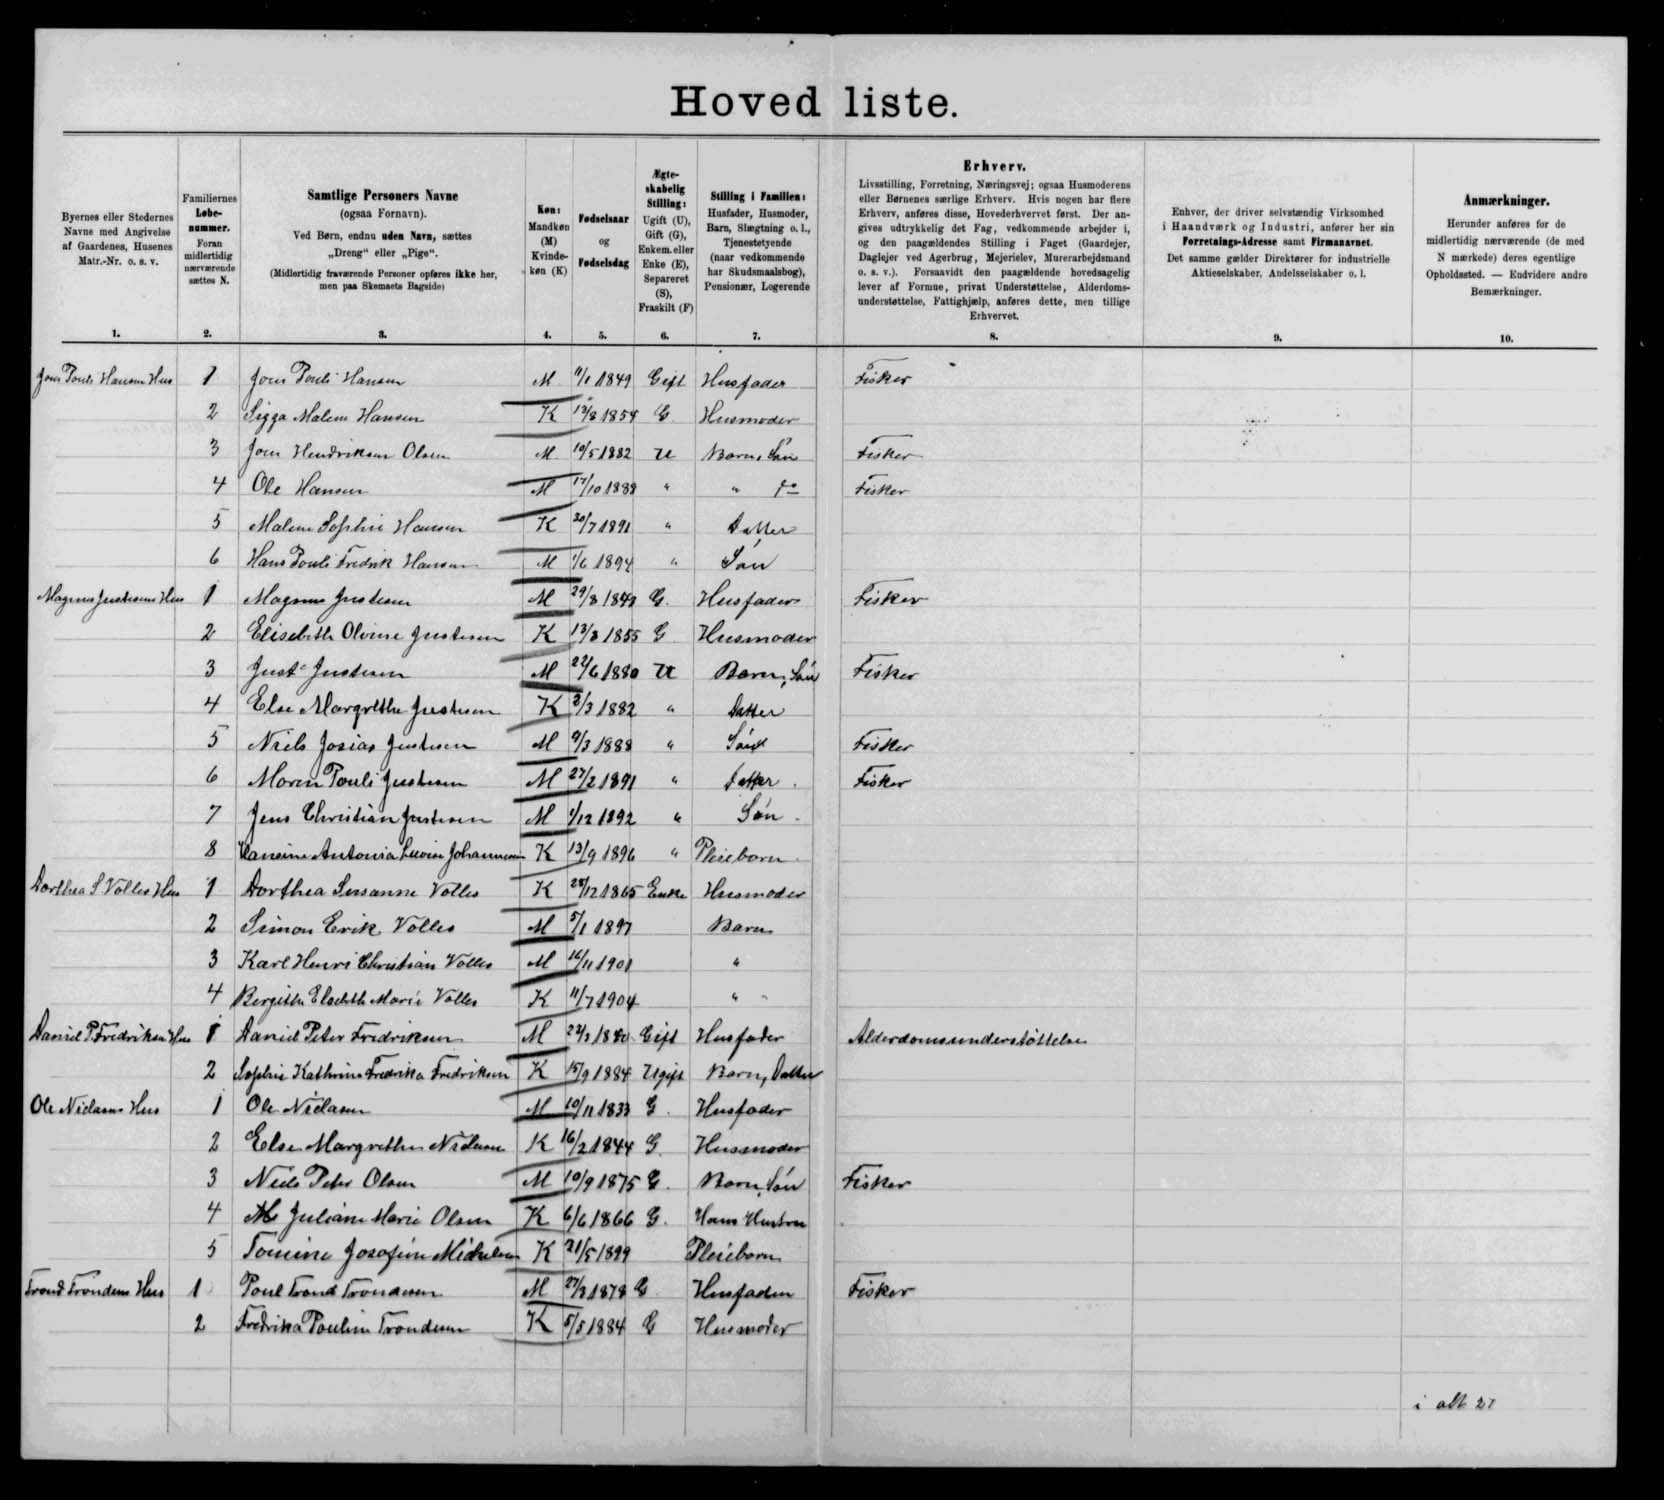 Hoved liste.
Byernes eller Stedernes
Navne med Angivelse
af Gaardenes, Husenes
Matr.-Nr. o. s. v.
1.
Familiernes
Løbe-
nummer.
Foran
midlertidig
nærværende
sættes N.
2.
Samtlige Personers Navne
(ogsaa Fornavn).
Ved Børn, endnu uden Navn, sættes
„Dreng“ eller „Pige“.
(Midlertidig fraværende Personer opføres ikke her,
men paa Skemaets Bagside)
3.
Køn:
Mandkøn
(M)
Kvinde-
køn (K)
4.
Fødselsaar
og
Fødselsdag
5.
Ægte-
skabelig
Stilling:
Ugift (U),
Gift (G),
Enkem. eller
Enke (E),
Separeret
(S),
Fraskilt (F)
6.
Stilling i Familien:
Husfader, Husmoder,
Barn, Slægtning o. l.,
Tjenestetyende
(naar vedkommende
har Skudsmaalsbog),
Pensionær, Logerende
7.
Erhverv.
Livsstilling, Forretning, Næringsvej; ogsaa Husmoderens
eller Børnenes særlige Erhverv. Hvis nogen har flere
Erhverv, anføres disse, Hovederhvervet først. Der an-
gives udtrykkelig det Fag, vedkommende arbejder i,
og den paagældendes Stilling i Faget (Gaardejer,
Daglejer ved Agerbrug, Mejerielev, Murerarbejdsmand
o. s. v.). Forsaavidt den paagældende hovedsagelig
lever af Formue, privat Understøttelse, Alderdoms-
understøttelse, Fattighjælp, anføres dette, men tillige
Erhvervet.
8.
Enhver, der driver selvstændig Virksomhed
i Haandværk og Industri, anfører her sin
Forretnings-Adresse samt Firmanavnet.
Det samme gælder Direktører for industrielle
Aktieselskaber, Andelsselskaber o. l.
9.
Anmærkninger.
Herunder anføres for de
midlertidig nærværende (de med
N mærkede) deres egentlige
Opholdssted. — Endvidere andre
Bemærkninger.
10.
Joen Pouli Hansens Hus 1 Joen Pouli Hansen M 1849 Gift Husfader Fisker
2 Sigga Malene Hansen K 12/8 1854 G. Husmoder
3 Joen Hendriksen Olsen M 10/5 1882 U Barn, Søn Fisker
4 Ole Hansen M 17/10 1888 " " do Fisker
5 Malene Sophie Hansen K 20/7 1891 " Datter
6 Hans Pouli Fredrik Hansen M 1/6 1894 " Søn
Magnus Justesens Hus 1 Magnus Justesen M 29/8 G. Husfader Fisker
2 Elisebeth Olvine Justesen K 13/3 1855 G Husmoder
3 Just Justesen M 22/6 1880 U Barn, Søn Fisker
4 Else Margrethe Justesen K 2/3 1882 " Datter
5 Niels Josias Justesen M 9/3 1888 " Søn Fisker
6 Moren Pouli Justesen M 27/2 1891 " Datter Fisker
7 Jens Christian Justesen M 1/12 1892 " Søn
8 Hansine Antonia Lovise Johannesen K 13/9 1896 " Pleiebarn
Dorthea S Volles Hus 1 Dorthea Susanne Volles K 28/12 1865 Enke Husmoder
2 Simon Erik Volles M 5/1 1897 Barn
3 Karl Henri Christian Volles M 16/11 1901 "
4 Bergithe Elsebeth Marie Volles K 11/7 1904 "
Daniel P. Fredriksen Hus 1 Daniel Peter Fredriksen M 22/3 Gift Husfader Alderdomsunderstøttelse
2 Sophie Kathrine Fredrika Fredriksen K 15/9 1884 Ugift Barn, Datter
Ole Niclasens Hus 1 Ole Niclasen M 10/11 1833 G. Husfader
2 Else Margrethe Niclasen K 16/2 1844 G. Husmoder
3 Niels Peter Olsen M 10/9 1875 G. Barn, Søn Fisker
4 Juliane Marie Olsen K 6/6 1866 G. Hans Hustru
5 Tomine Josefine Mickelsen K 21/5 1899 Pleiebarn
Trond Trondens Hus 1 Poul Trond Trondesen M 27/3 1878 G Husfader Fisker
2 Fredrika Pouline Trondesen K 5/5 1884 G Husmoder
i alt 27